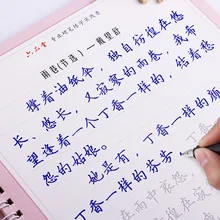 六品堂 专业硬笔练字实战营
雨巷(节选)—戴望舒
撑着油纸伞，独自彷徨在悠
长、悠长 又寂寥的雨巷，我希
望逢着一个丁香一样的，结着愁
怨的姑娘。
她是有，丁香一样的
丁香一样的芬芳
在雨中哀怨，